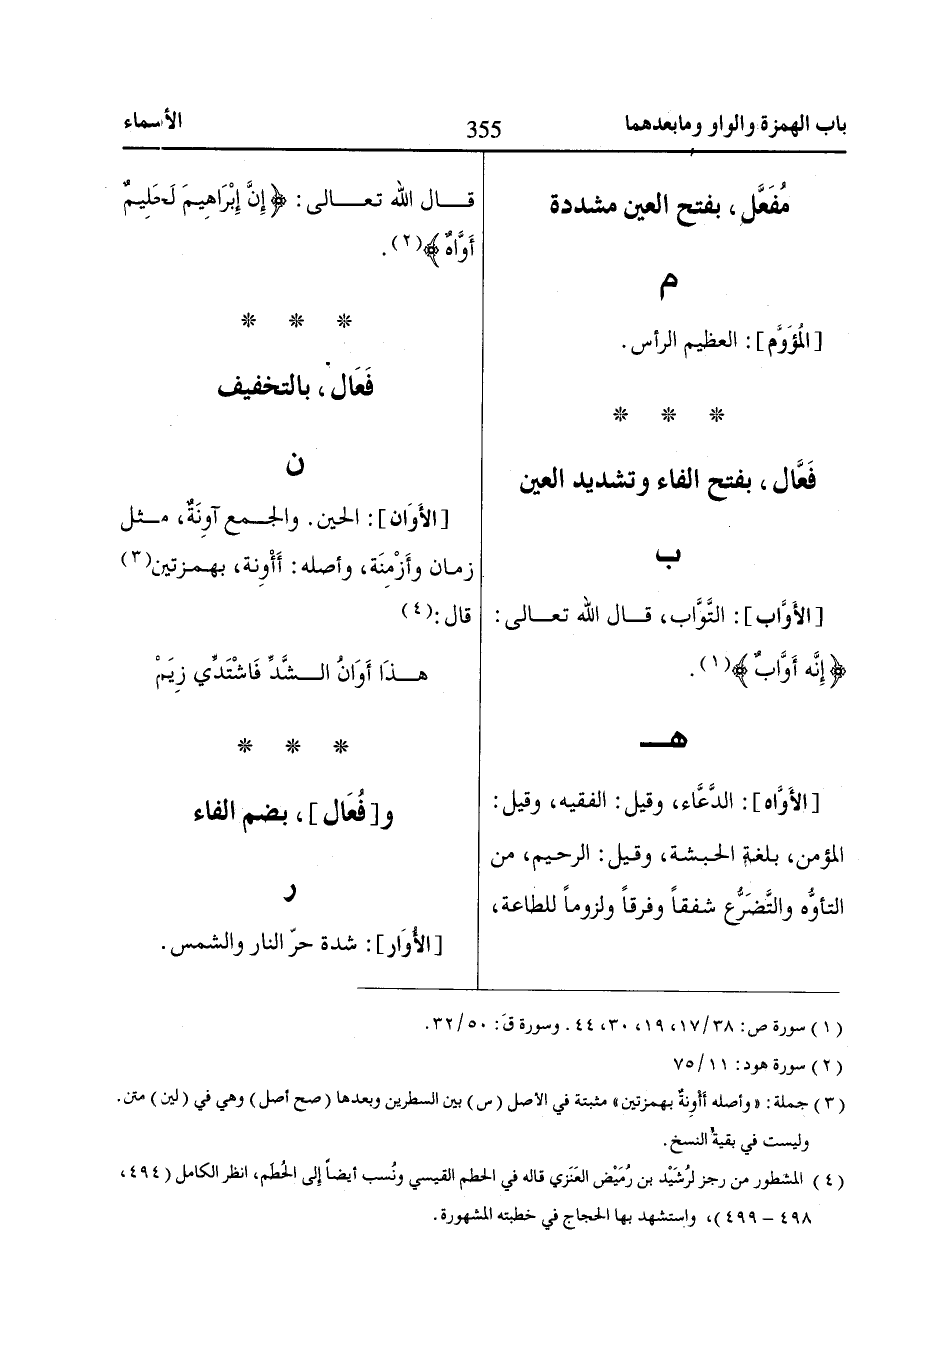 باب الهمزة والواو ومابعدهما
355
الأسماء
مُفَعَّل، بفتح العين مشددة
م
[المُؤَوَّم]: العظيم الرأس.
* * *
فَعَّال، بفتح الفاء وتشديد العين
ب
[الأَوَّاب]: التَّوَّاب، قـال الله تعـالى:
﴿إِنَّه أَوَّابٌ﴾(١).
هـ
[الأَوَّاه]: الدَّعَّاء، وقيل: الفقيه، وقيل:
المؤمن، بلغة الحبشة، وقيل: الرحيم، من
التأوُّه والتَّضَرُّع شفقاً وفرقاً ولزوماً للطاعة،
قـال الله تعـالى: ﴿إِنَّ إِبْرَاهِيمَ لَحَلِيمٌ
أَوَّاهٌ﴾(٢).
* * *
فَعَال، بالتخفيف
ن
[الأَوَان]: الحين. والجـمع آوِنَةٌ، مـثل
زمـان وأَزْمِنَة، وأصله: أَأْوِنة، بهـمزتين(٣)
قال:(٤)
هـذَا أَوَانُ الـشَّدِّ فَاشْتَدِّي زِيَمْ
* * *
و[فُعَال]، بضم الفاء
ر
[الأُوَار]: شدة حرّ النار والشمس.
(١) سورة ص: ١٧/٣٨، ١٩، ٣٠، ٤٤. وسورة قَ: ٣٢/٥٠.
(٢) سورة هود: ٧٥/١١
(٣) جملة: «وأصله أَأْوِنةٌ بهمزتين» مثبتة في الأصل (س) بين السطرين وبعدها (صح أصل) وهي في (لين) متن.
وليست في بقية النسخ.
(٤) المشطور من رجز لرُشَيْد بن رُمَيْض العَنَزي قاله في الحطم القيسي ونُسب أيضاً إلى الحُطَم، انظر الكامل (٤٩٤،
٤٩٨ – ٤٩٩)، واستشهد بها الحجاج في خطبته المشهورة.